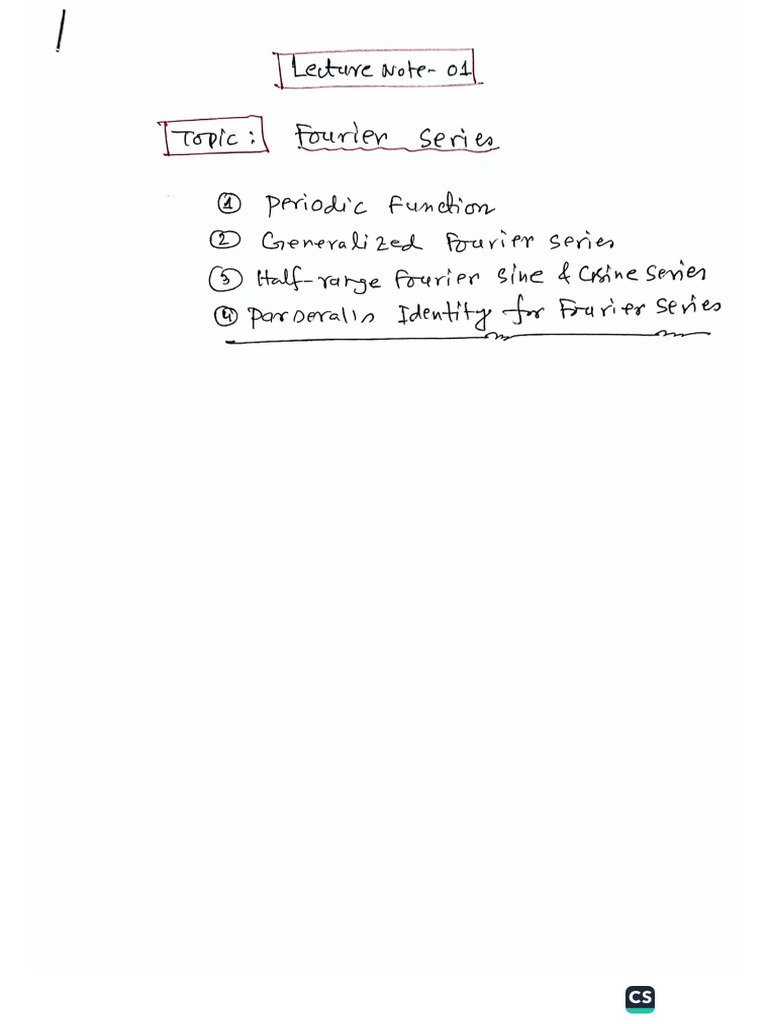 1
Lecture Note-01
Topic: Fourier Series
① Periodic Function
② Generalized Fourier Series
③ Half-range Fourier Sine & Cosine Series
④ Parseval's Identity for Fourier Series
CS